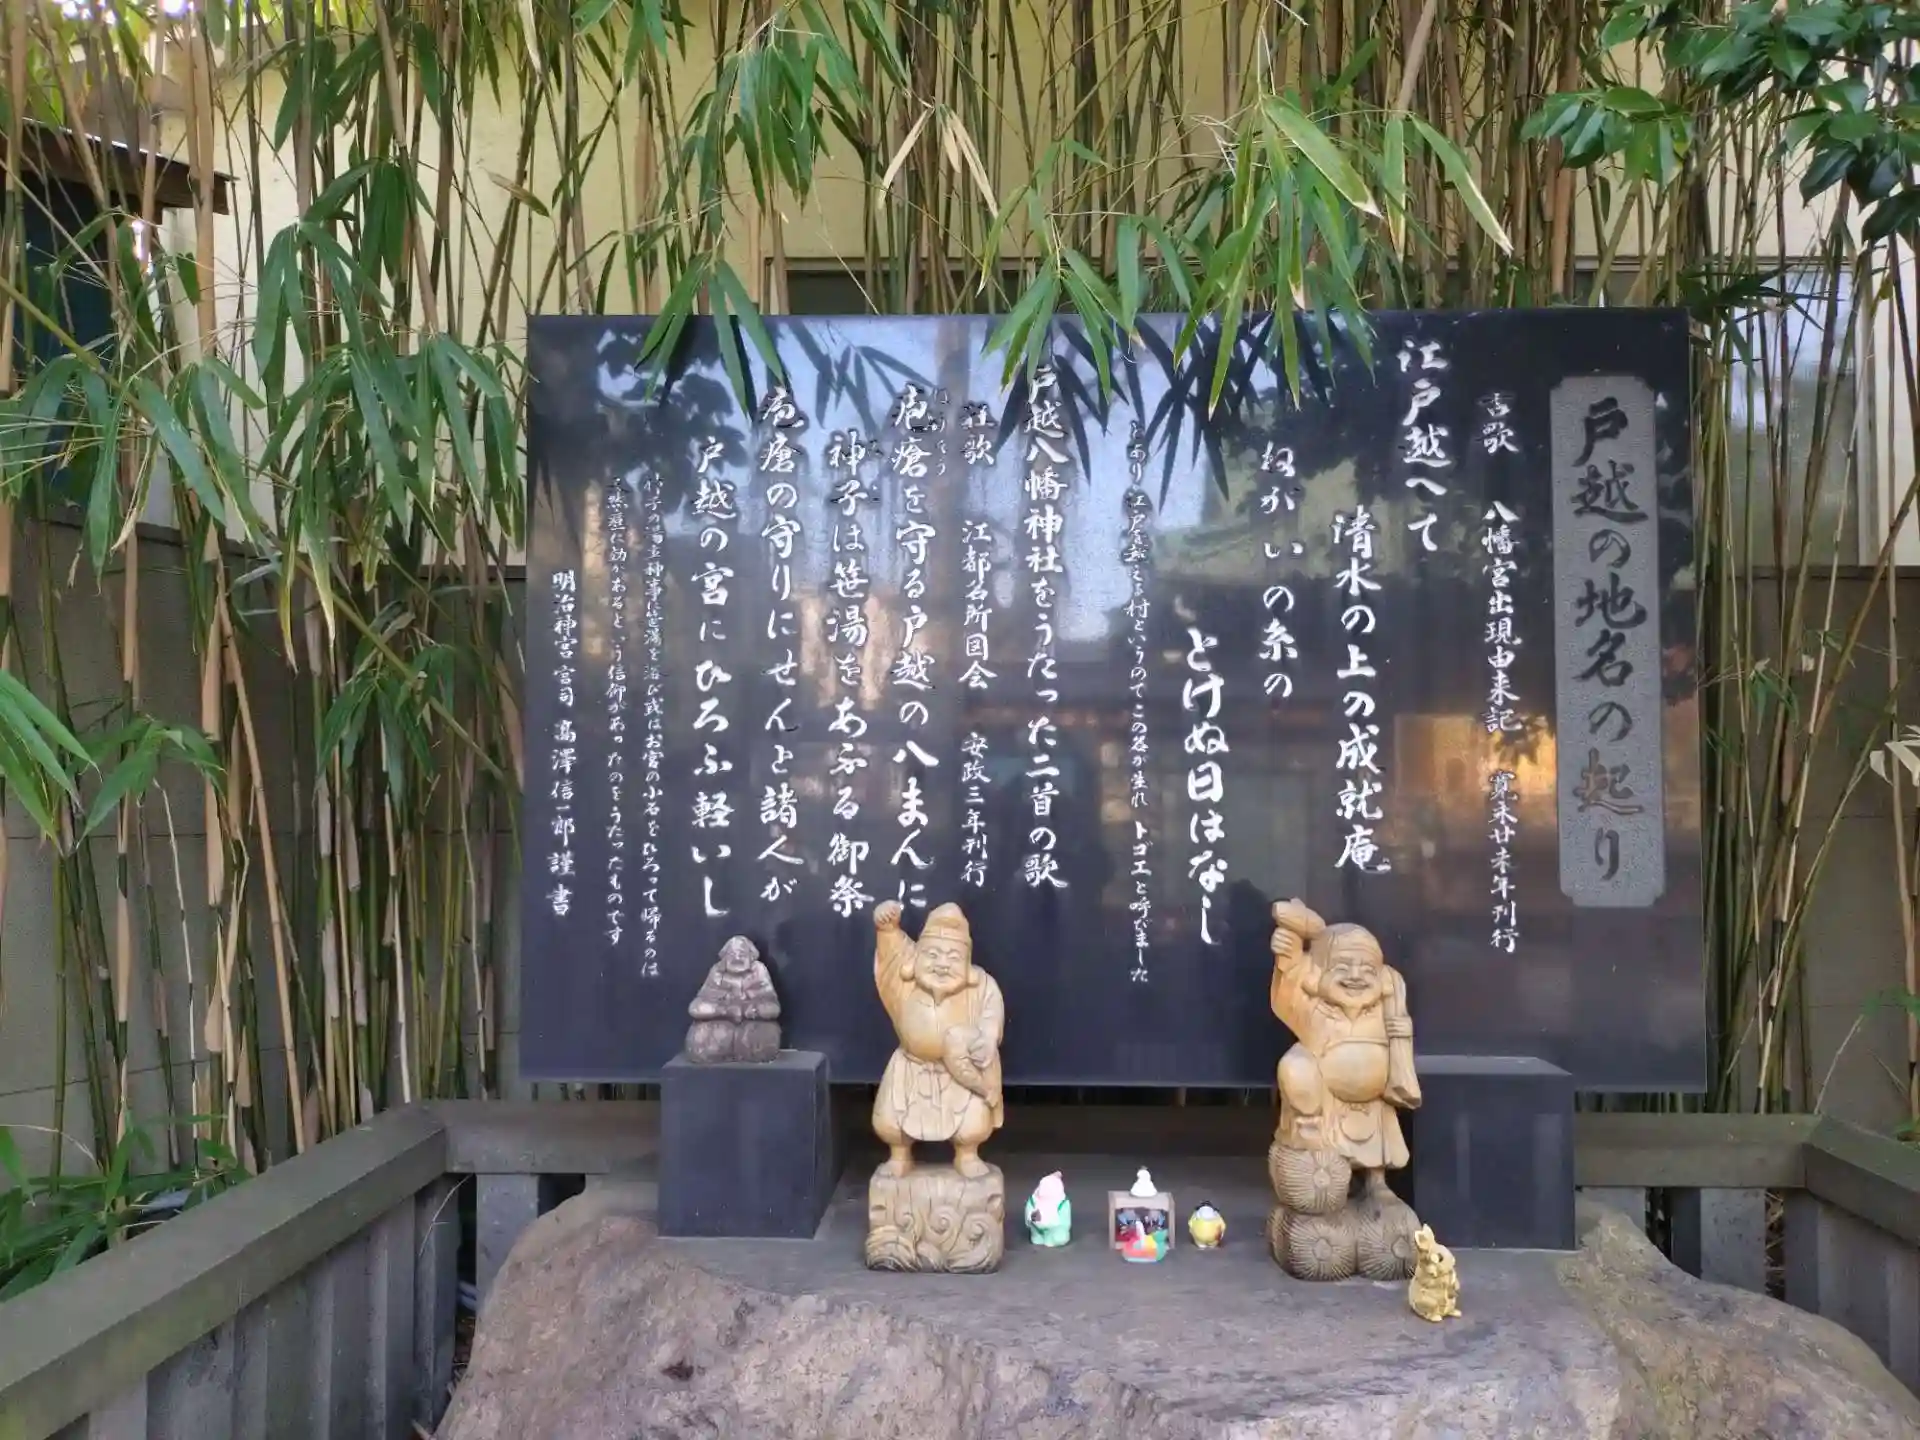 戸越の地名の起り
古歌 八幡宮出現由来記 寛永廿未年刊行
江戸越へて
清水の上の成就庵
ねがいの糸の
とけぬ日はなし
とあり江戸を越える村というのでこの名が生れ トゴエと呼びました
戸越八幡神社をうたった二首の歌
狂歌 江都名所図会 安政三年刊行
疱瘡を守る戸越の八まんに
ほうそう
神子は笹湯をあふる御祭
疱瘡の守りにせんと諸人が
戸越の宮にひろふ軽いし
神子の湯立神事に笹湯を浴び或はお宮の小石をひろって帰るのは
疱瘡に効があるという信仰があったのをうたったものです
明治神宮 宮司 高澤信一郎 謹書